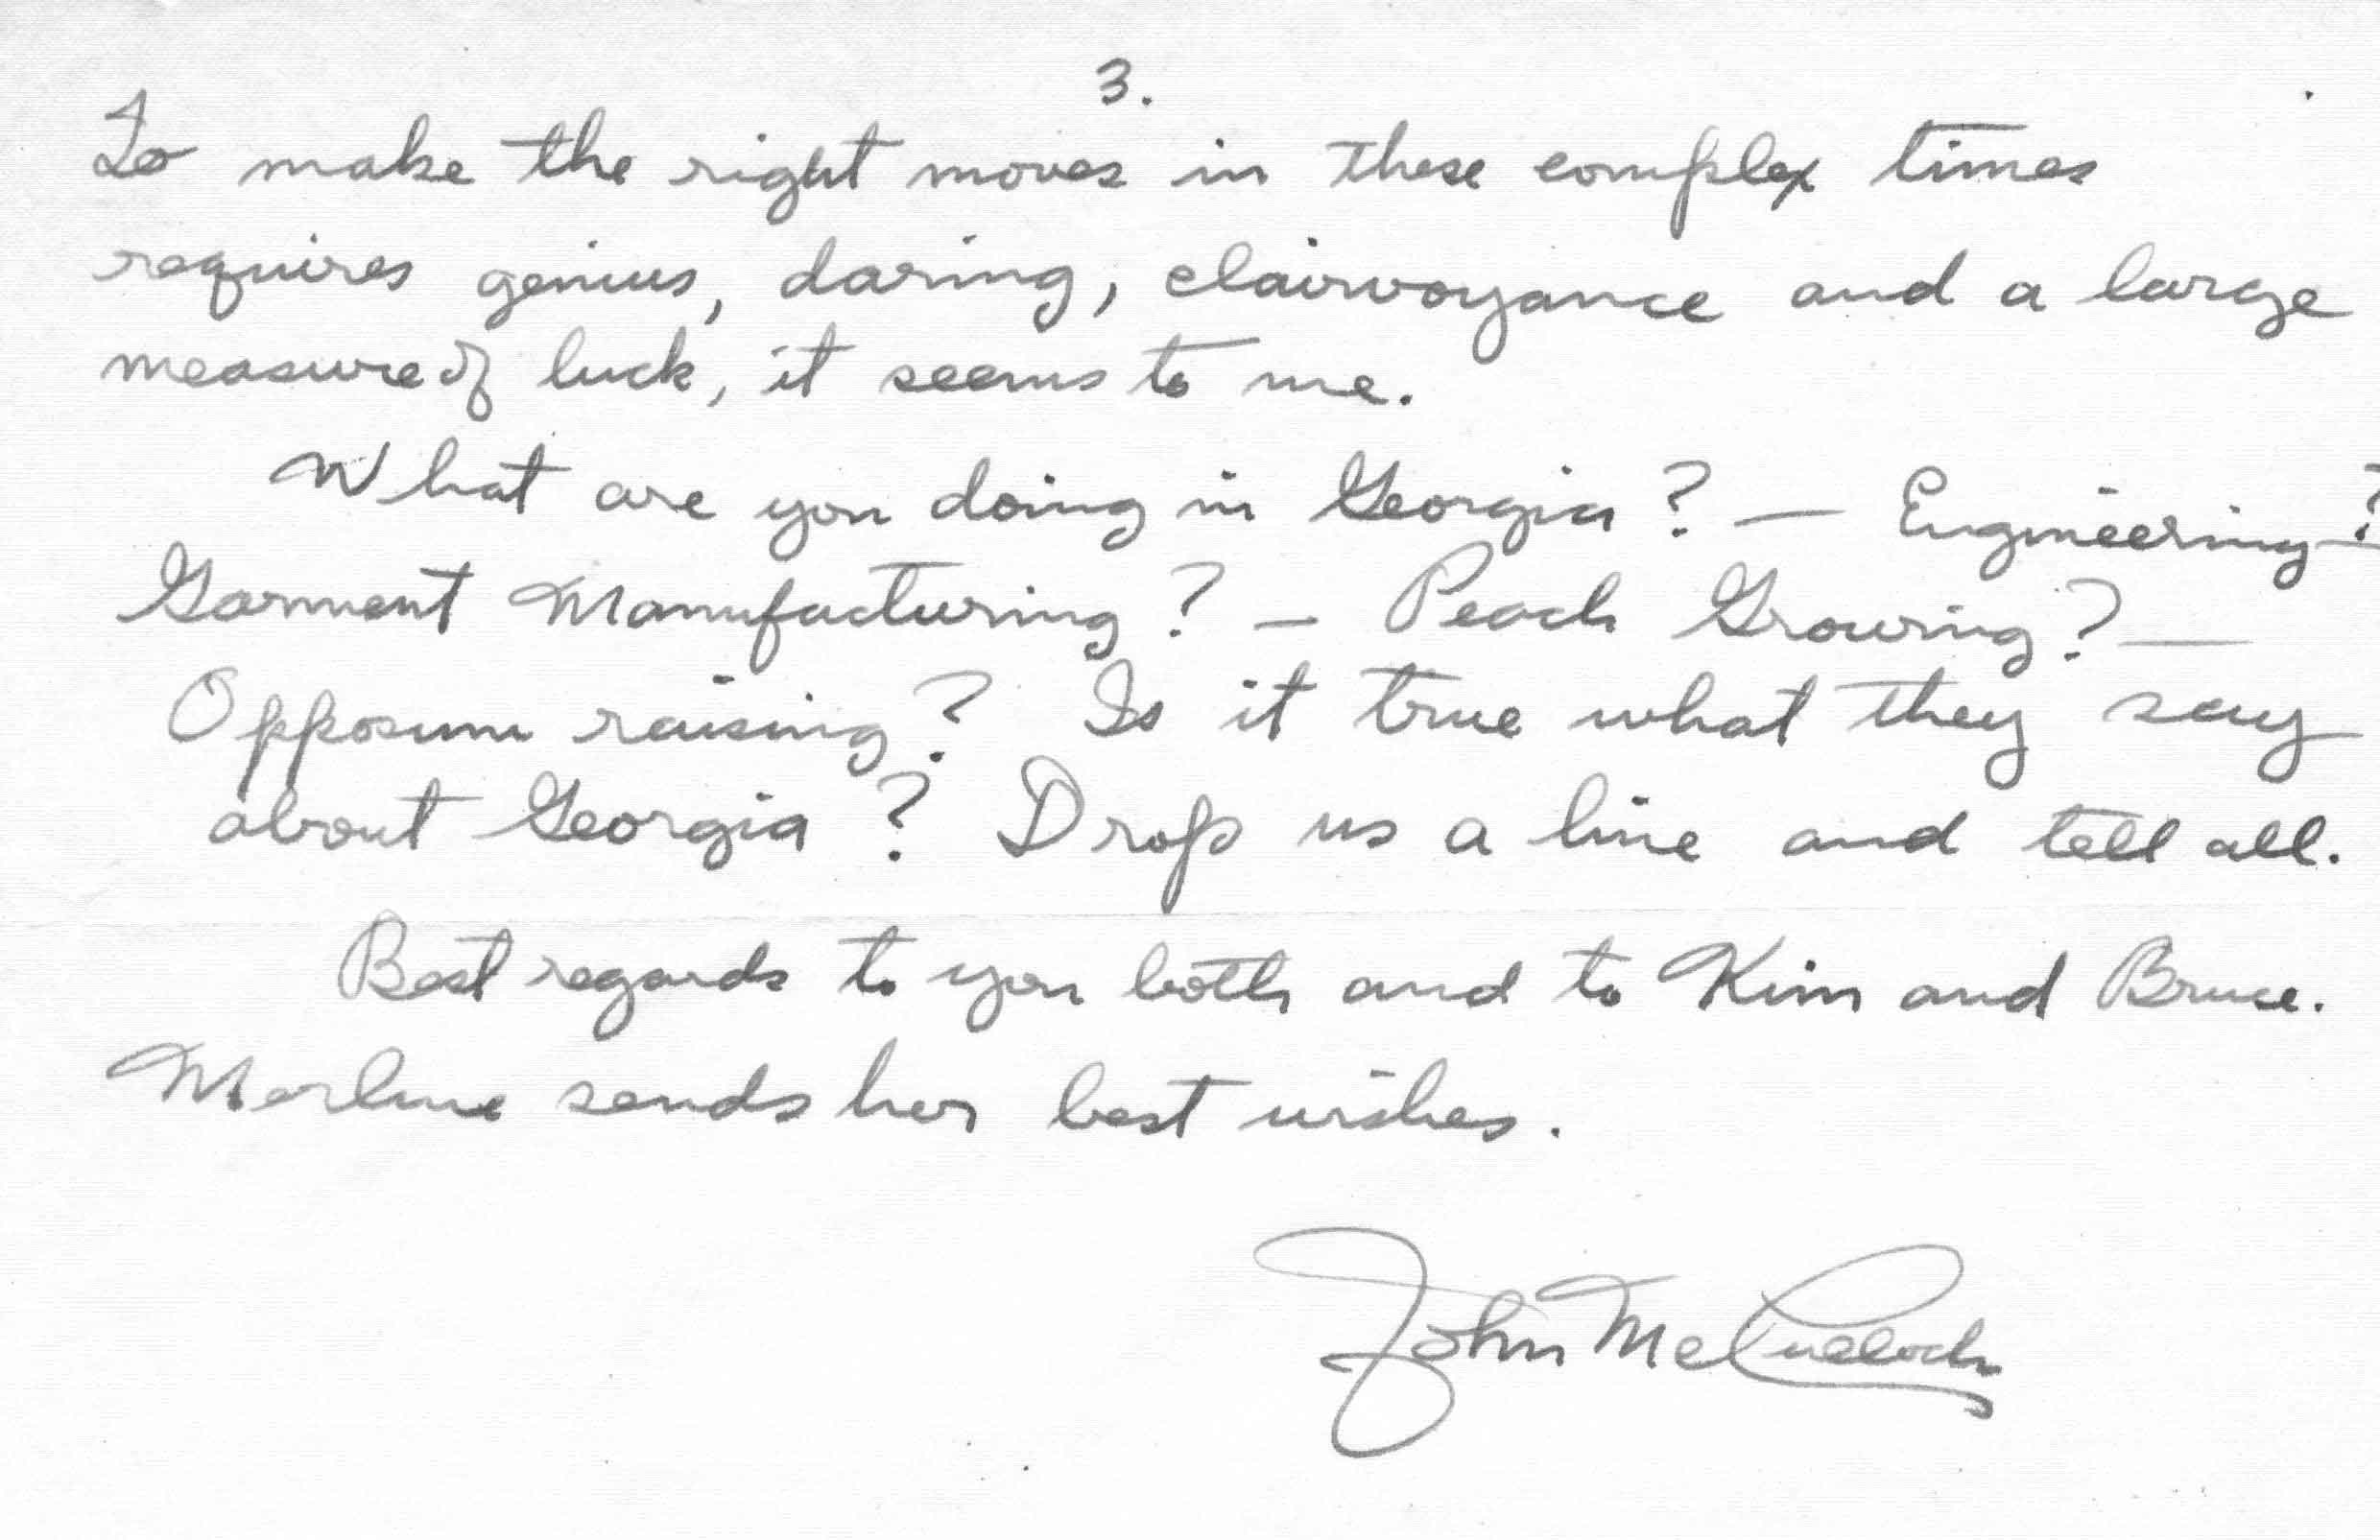 3.
To make the right moves in these complex times
requires genius, daring, clairvoyance and a large
measure of luck, it seems to me.
What are you doing in Georgia? — Engineering? —
Garment Manufacturing? — Peach Growing? —
Opposum raising? Is it true what they say
about Georgia? Drop us a line and tell all.
Best regards to you both and to Kim and Bruce.
Merline sends her best wishes.
John McCulloch